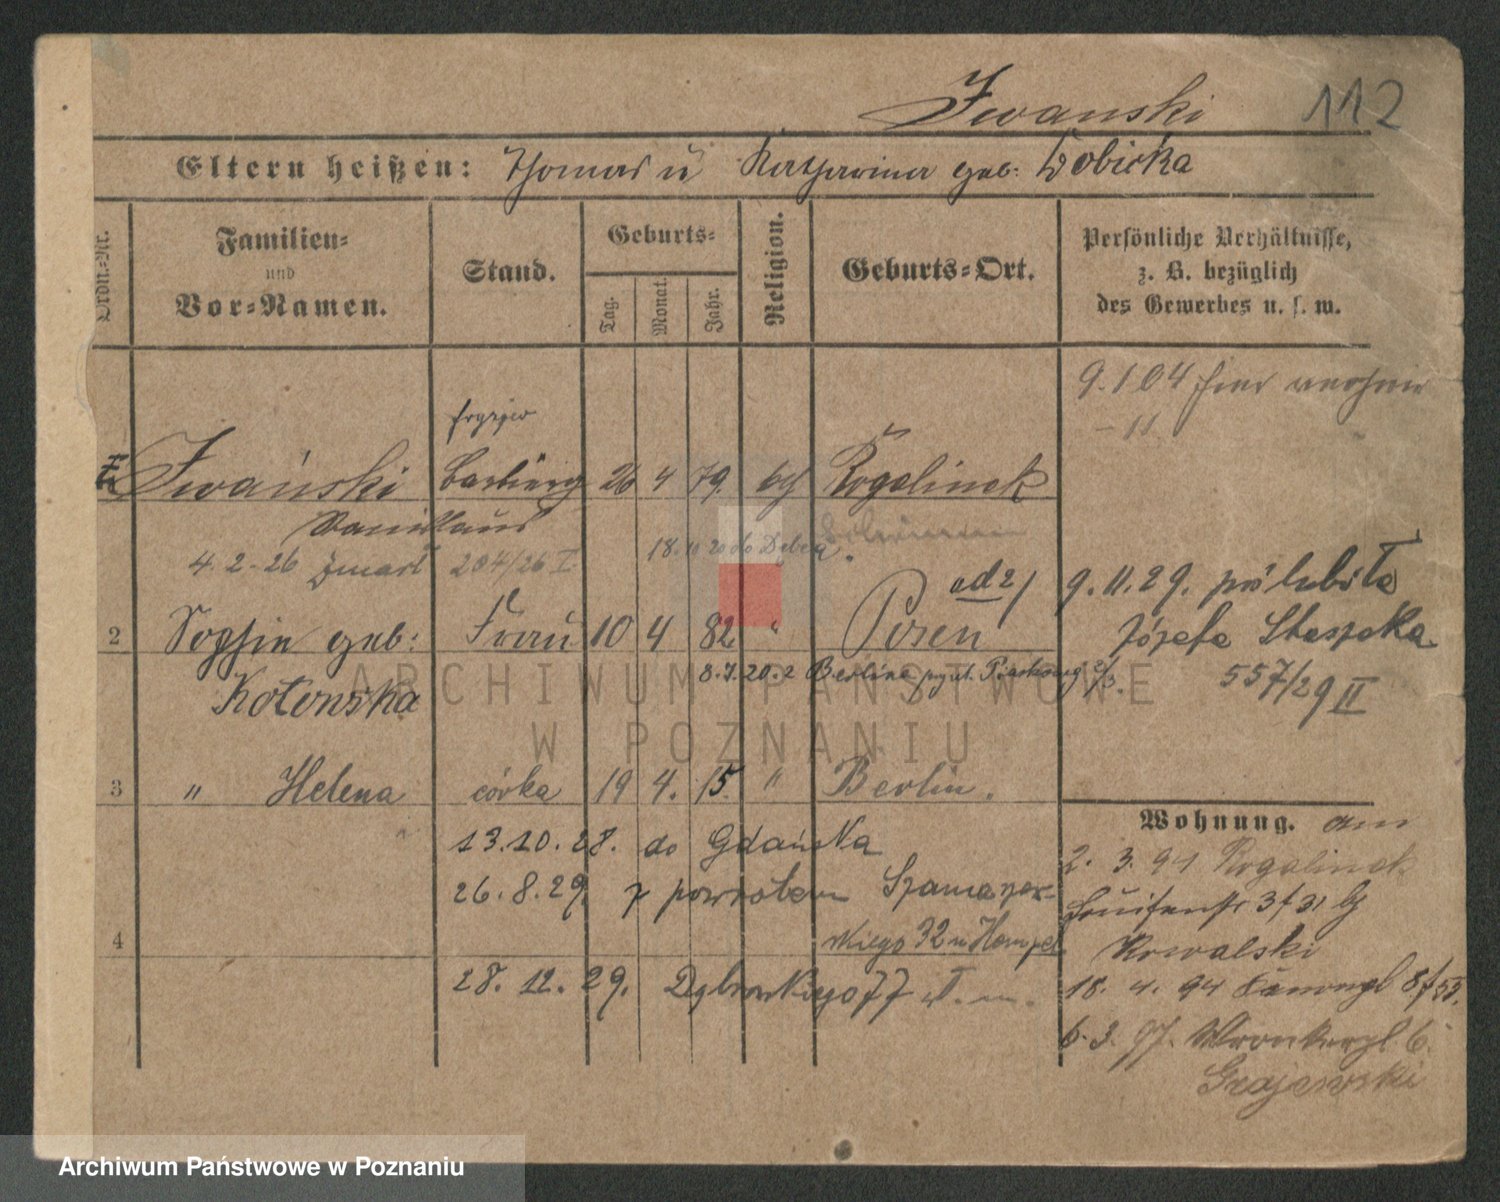 Iwanski 112
Eltern heißen: Thomas u Katharina geb: Dobicka
Ordn.-Nr.
Familien-
und
Vor-Namen.
Stand.
Geburts-
Tag.
Monat.
Jahr.
Religion.
Geburts-Ort.
Persönliche Verhältnisse,
z. B. bezüglich
des Gewerbes u. s. w.
9. 1 04
fryzjer
Iwański Barbierg 26 4 79. kth Rogalinek
Stanislaus
4. 2 - 26 zmarł 204/26 I
18. 11 20 do Dębca.
ad 2/ 9. 11. 29. poślubiła
2 Sophie geb: Frau 10 4 82 " Posen
Józefa Staszaka
Kotowska
8. 7. 20. z Berlina
557/29 II
3 " Helena córka 19 4. 15. " Berlin.
13. 10. 28. do Gdańska
26. 8. 29. z powrotem Szamarzew-
skiego 32 u
4
28. 12. 29. Dąbrowskiego 77
Wohnung. am
2. 3. 94 Rogalinek
Louisenstr 3
Kowalski
18. 4. 94
6. 3. 97. Wronkerpl 6.
Grajewski
ARCHIWUM PAŃSTWOWE
W POZNANIU
Archiwum Państwowe w Poznaniu